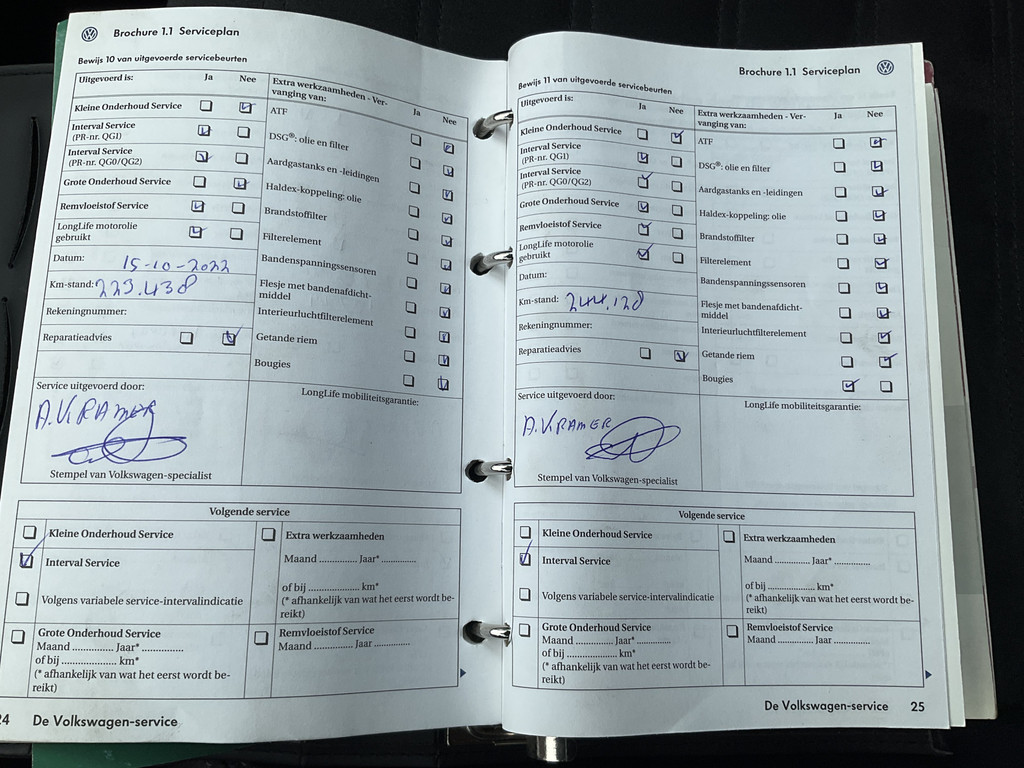 Brochure 1.1 Serviceplan
Bewijs 10 van uitgevoerde servicebeurten
Uitgevoerd is: Ja Nee
Kleine Onderhoud Service
Interval Service
(PR-nr. QG1)
Interval Service
(PR-nr. QG0/QG2)
Grote Onderhoud Service
Remvloeistof Service
LongLife motorolie
gebruikt
Datum: 15-10-2022
Km-stand: 223.438
Rekeningnummer:
Reparatieadvies
Extra werkzaamheden - Ver-
vanging van: Ja Nee
ATF
DSG®: olie en filter
Aardgastanks en -leidingen
Haldex-koppeling: olie
Brandstoffilter
Filterelement
Bandenspanningssensoren
Flesje met bandenafdicht-
middel
Interieurluchtfilterelement
Getande riem
Bougies
Service uitgevoerd door:
A.V.KRAMER
Stempel van Volkswagen-specialist
LongLife mobiliteitsgarantie:
Volgende service
Kleine Onderhoud Service
Interval Service
Volgens variabele service-intervalindicatie
Extra werkzaamheden
Maand .............. Jaar* .............
of bij .................... km*
(* afhankelijk van wat het eerst wordt be-
reikt)
Grote Onderhoud Service
Maand .............. Jaar* ..............
of bij .................... km*
(* afhankelijk van wat het eerst wordt be-
reikt)
Remvloeistof Service
Maand .............. Jaar ..............
24 De Volkswagen-service
Brochure 1.1 Serviceplan
Bewijs 11 van uitgevoerde servicebeurten
Uitgevoerd is: Ja Nee
Kleine Onderhoud Service
Interval Service
(PR-nr. QG1)
Interval Service
(PR-nr. QG0/QG2)
Grote Onderhoud Service
Remvloeistof Service
LongLife motorolie
gebruikt
Datum:
Km-stand: 244.128
Rekeningnummer:
Reparatieadvies
Extra werkzaamheden - Ver-
vanging van: Ja Nee
ATF
DSG®: olie en filter
Aardgastanks en -leidingen
Haldex-koppeling: olie
Brandstoffilter
Filterelement
Bandenspanningssensoren
Flesje met bandenafdicht-
middel
Interieurluchtfilterelement
Getande riem
Bougies
Service uitgevoerd door:
A.V.KRAMER
Stempel van Volkswagen-specialist
LongLife mobiliteitsgarantie:
Volgende service
Kleine Onderhoud Service
Interval Service
Volgens variabele service-intervalindicatie
Extra werkzaamheden
Maand .............. Jaar* .............
of bij .................... km*
(* afhankelijk van wat het eerst wordt be-
reikt)
Grote Onderhoud Service
Maand .............. Jaar* ..............
of bij .................... km*
(* afhankelijk van wat het eerst wordt be-
reikt)
Remvloeistof Service
Maand .............. Jaar ..............
De Volkswagen-service 25